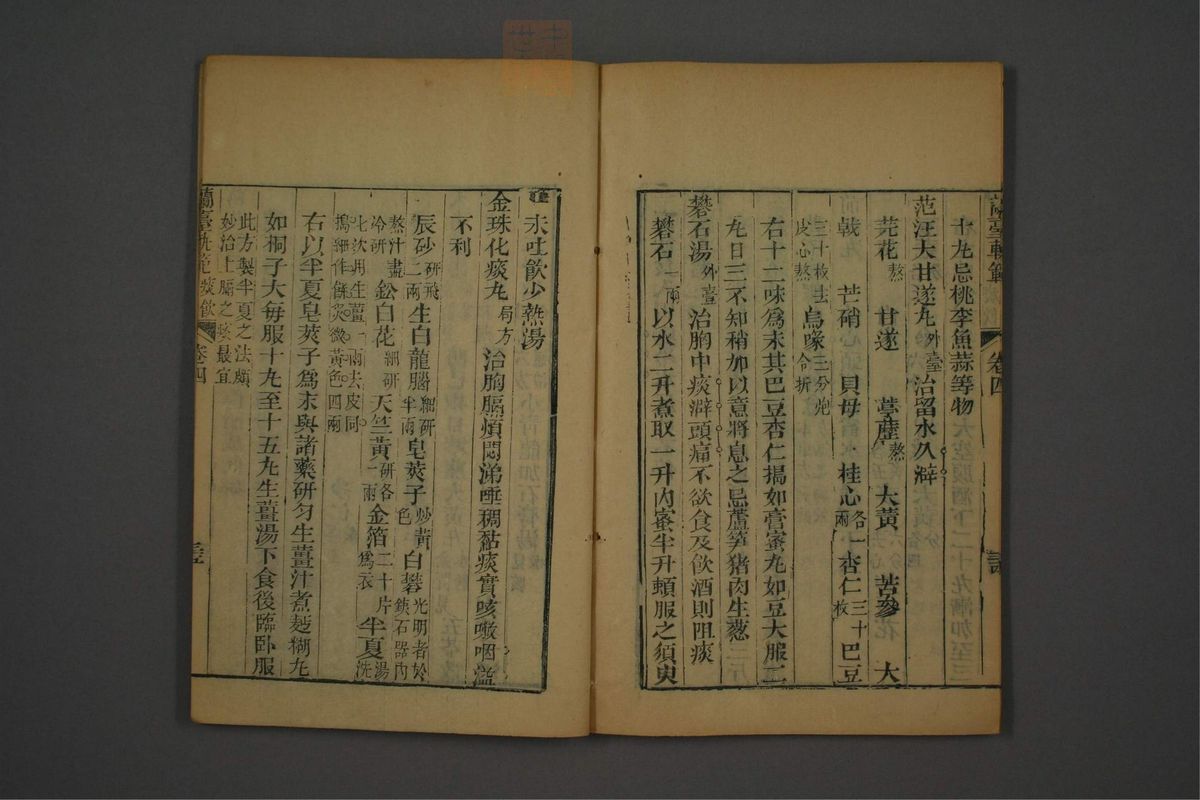 蘭臺軌範 卷四
十丸忌桃李魚蒜等物
范汪大甘遂丸外臺治留水久澼
芫花熬 甘遂 葶藶熬 大黃 苦參 大
戟 芒硝 貝母 桂心各一兩 杏仁三十枚 巴豆
三十枚去皮心熬 烏喙三分炮令拆
右十二味爲末其巴豆杏仁搗如膏蜜丸如豆大服二
丸日三不知稍加以意將息之忌蘆笋猪肉生葱
礬石湯外臺治胸中痰澼頭痛不欲食及飲酒則阻痰
礬石一兩以水二升煮取一升內蜜半升頓服之須臾
未吐飲少熱湯
金珠化痰丸局方治胸膈煩悶涕唾稠黏痰實咳嗽咽嗌
不利
辰砂二兩研飛 生白龍腦細研半兩 皂莢子炒黃色 白礬光明者於鐵石器內
熬汁盡冷研 鉛白花細研 天竺黃研各一兩 金箔二十片爲衣 半夏湯洗
七次用生薑二兩去皮同搗細作餅炙微黃色四兩
右以半夏皂莢子爲末與諸藥研匀生薑汁煮麪糊丸
如桐子大每服十丸至十五丸生薑湯下食後臨卧服
此方製半夏之法頗妙治上膈之痰最宜
蘭臺軌範 痰飲 卷四